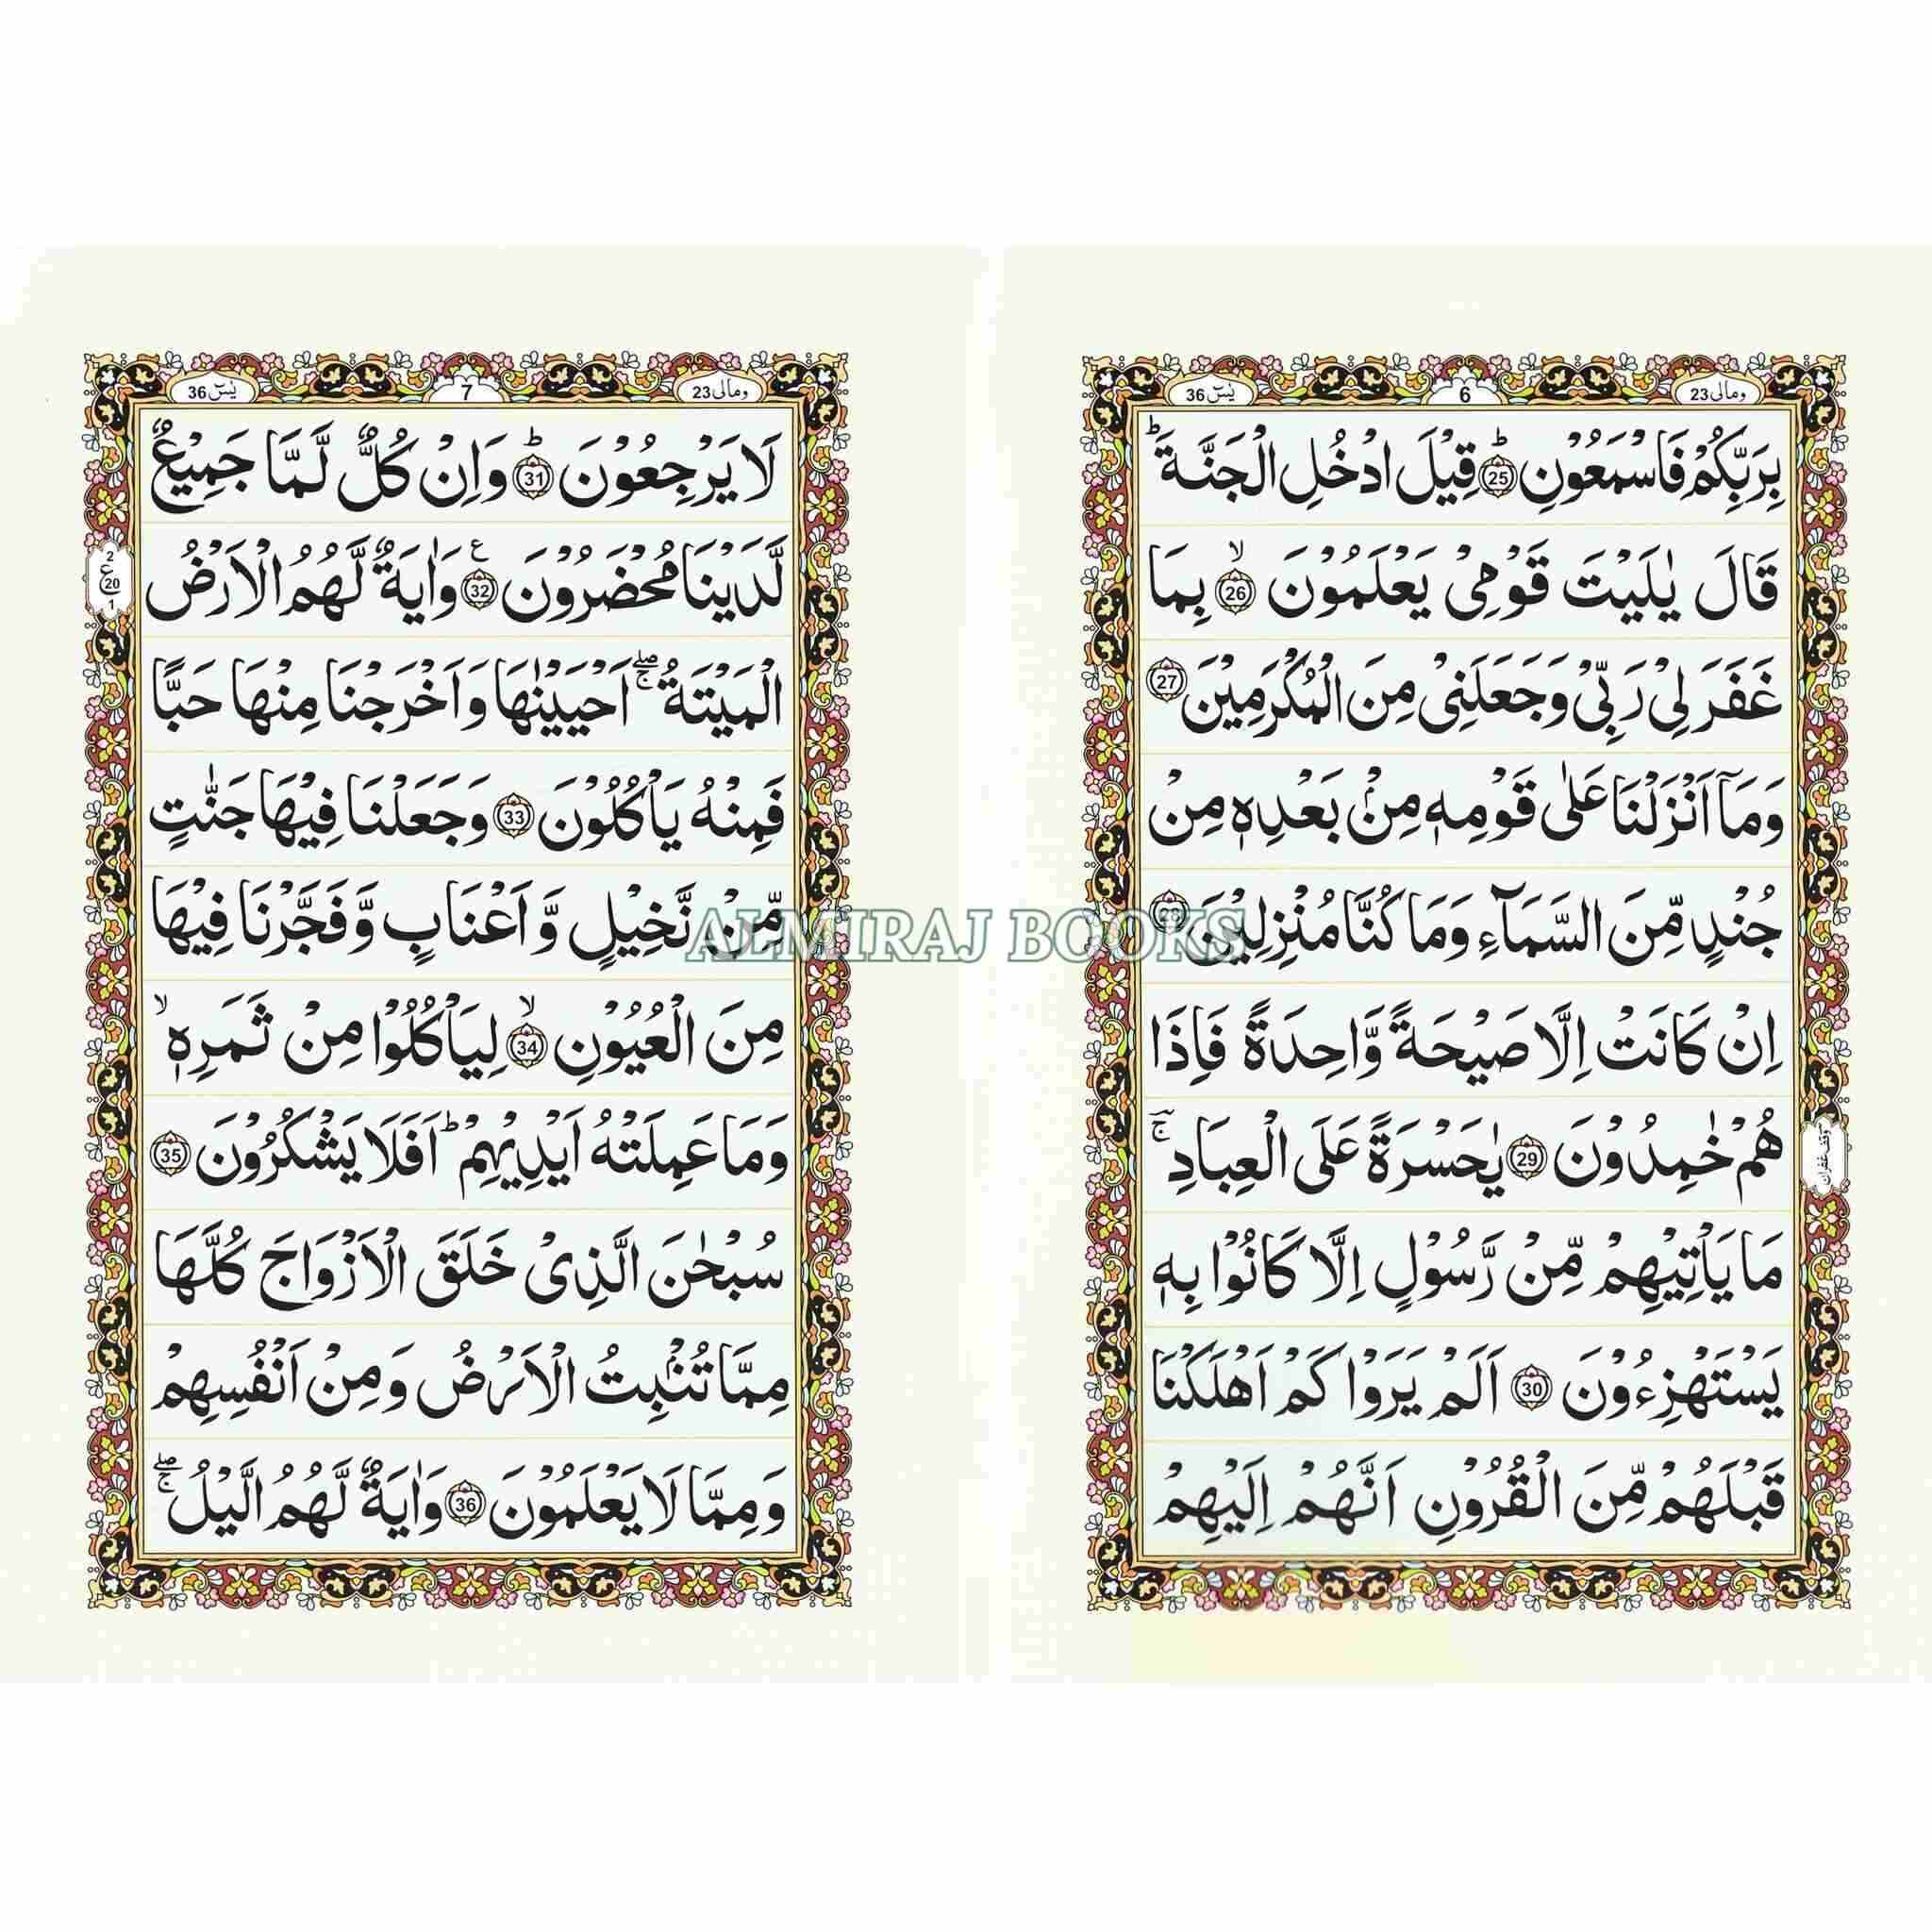 ومالی 23
6
یٰسٓ 36
بِرَبِّكُمْ فَاسْمَعُوْنِ ؕ 25 قِيْلَ ادْخُلِ الْجَنَّةَ ؕ
قَالَ يٰلَيْتَ قَوْمِيْ يَعْلَمُوْنَ ۙ 26 بِمَا
غَفَرَ لِيْ رَبِّيْ وَجَعَلَنِيْ مِنَ الْمُكْرَمِيْنَ 27
وَمَاۤ اَنْزَلْنَا عَلٰى قَوْمِهٖ مِنْۢ بَعْدِهٖ مِنْ
جُنْدٍ مِّنَ السَّمَآءِ وَمَا كُنَّا مُنْزِلِيْنَ 28
اِنْ كَانَتْ اِلَّا صَيْحَةً وَّاحِدَةً فَاِذَا
هُمْ خٰمِدُوْنَ 29 يٰحَسْرَةً عَلَى الْعِبَادِ ۚ
وقف غفران
مَا يَاْتِيْهِمْ مِّنْ رَّسُوْلٍ اِلَّا كَانُوْا بِهٖ
يَسْتَهْزِءُوْنَ 30 اَلَمْ يَرَوْا كَمْ اَهْلَكْنَا
قَبْلَهُمْ مِّنَ الْقُرُوْنِ اَنَّهُمْ اِلَيْهِمْ
ومالی 23
7
یٰسٓ 36
لَا يَرْجِعُوْنَ ؕ 31 وَاِنْ كُلٌّ لَّمَّا جَمِيْعٌ
لَّدَيْنَا مُحْضَرُوْنَ ع 32 وَاٰيَةٌ لَّهُمُ الْاَرْضُ
2
ع 20
1
الْمَيْتَةُ ۖۚ اَحْيَيْنٰهَا وَاَخْرَجْنَا مِنْهَا حَبًّا
فَمِنْهُ يَاْكُلُوْنَ 33 وَجَعَلْنَا فِيْهَا جَنّٰتٍ
مِّنْ نَّخِيْلٍ وَّاَعْنَابٍ وَّفَجَّرْنَا فِيْهَا
مِنَ الْعُيُوْنِ ۙ 34 لِيَاْكُلُوْا مِنْ ثَمَرِهٖ ۙ
وَمَا عَمِلَتْهُ اَيْدِيْهِمْ ؕ اَفَلَا يَشْكُرُوْنَ 35
سُبْحٰنَ الَّذِيْ خَلَقَ الْاَزْوَاجَ كُلَّهَا
مِمَّا تُنْۢبِتُ الْاَرْضُ وَمِنْ اَنْفُسِهِمْ
وَمِمَّا لَا يَعْلَمُوْنَ 36 وَاٰيَةٌ لَّهُمُ الَّيْلُ ۖۚ
ALMIRAJ BOOKS